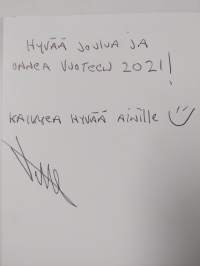 HYVÄÄ JOULUA JA
ONNEA VUOTEEN 2021!
KAIKKEA HYVÄÄ AINILLE